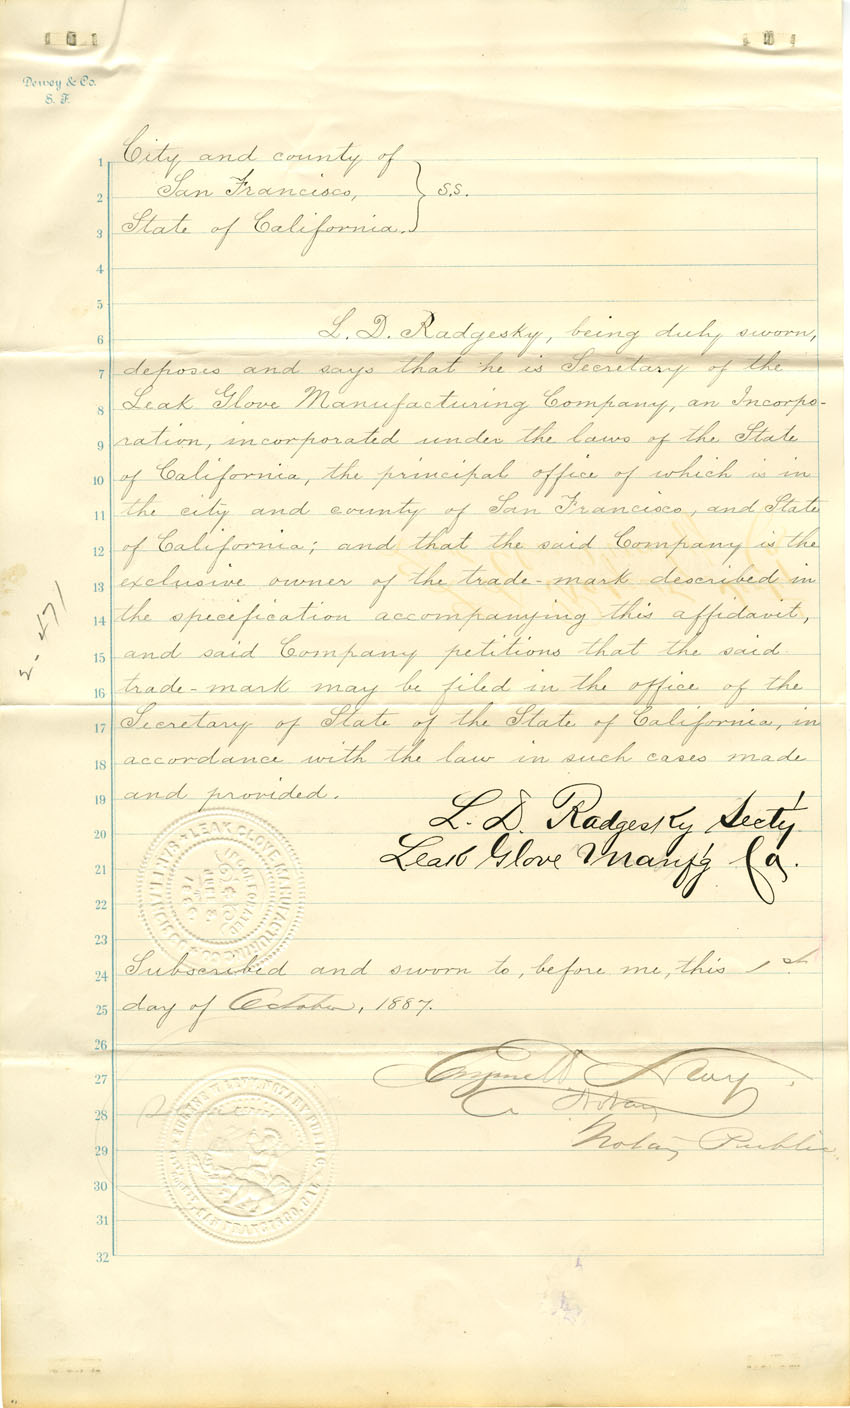 Dewey & Co.
S. F.
1 City and county of
2 San Francisco, } S.S.
3 State of California.
4
5
6 L. D. Radgesky, being duly sworn,
7 deposes and says that he is Secretary of the
8 Leak Glove Manufacturing Company, an Incorpo-
9 ration, incorporated under the laws of the State
10 of California, the principal office of which is in
11 the city and county of San Francisco, and State
12 of California; and that the said Company is the
13 exclusive owner of the trade-mark described in
14 the specification accompanying this affidavit,
15 and said Company petitions that the said
16 trade-mark may be filed in the office of the
17 Secretary of State of the State of California, in
18 accordance with the law in such cases made
19 and provided.
20 L. D. Radgesky Sect'y
21 Leak Glove Manf'g Co.
22
23
LEAK GLOVE MANUFACTURING CO. SAN FRANCISCO
INCORPORATED
24 Subscribed and sworn to, before me, this 1st
25 day of October, 1887.
26
27 Levy
28
29 Notary Public
30
31
32
LEVY, NOTARY PUBLIC
SAN FRANCISCO, CAL
471